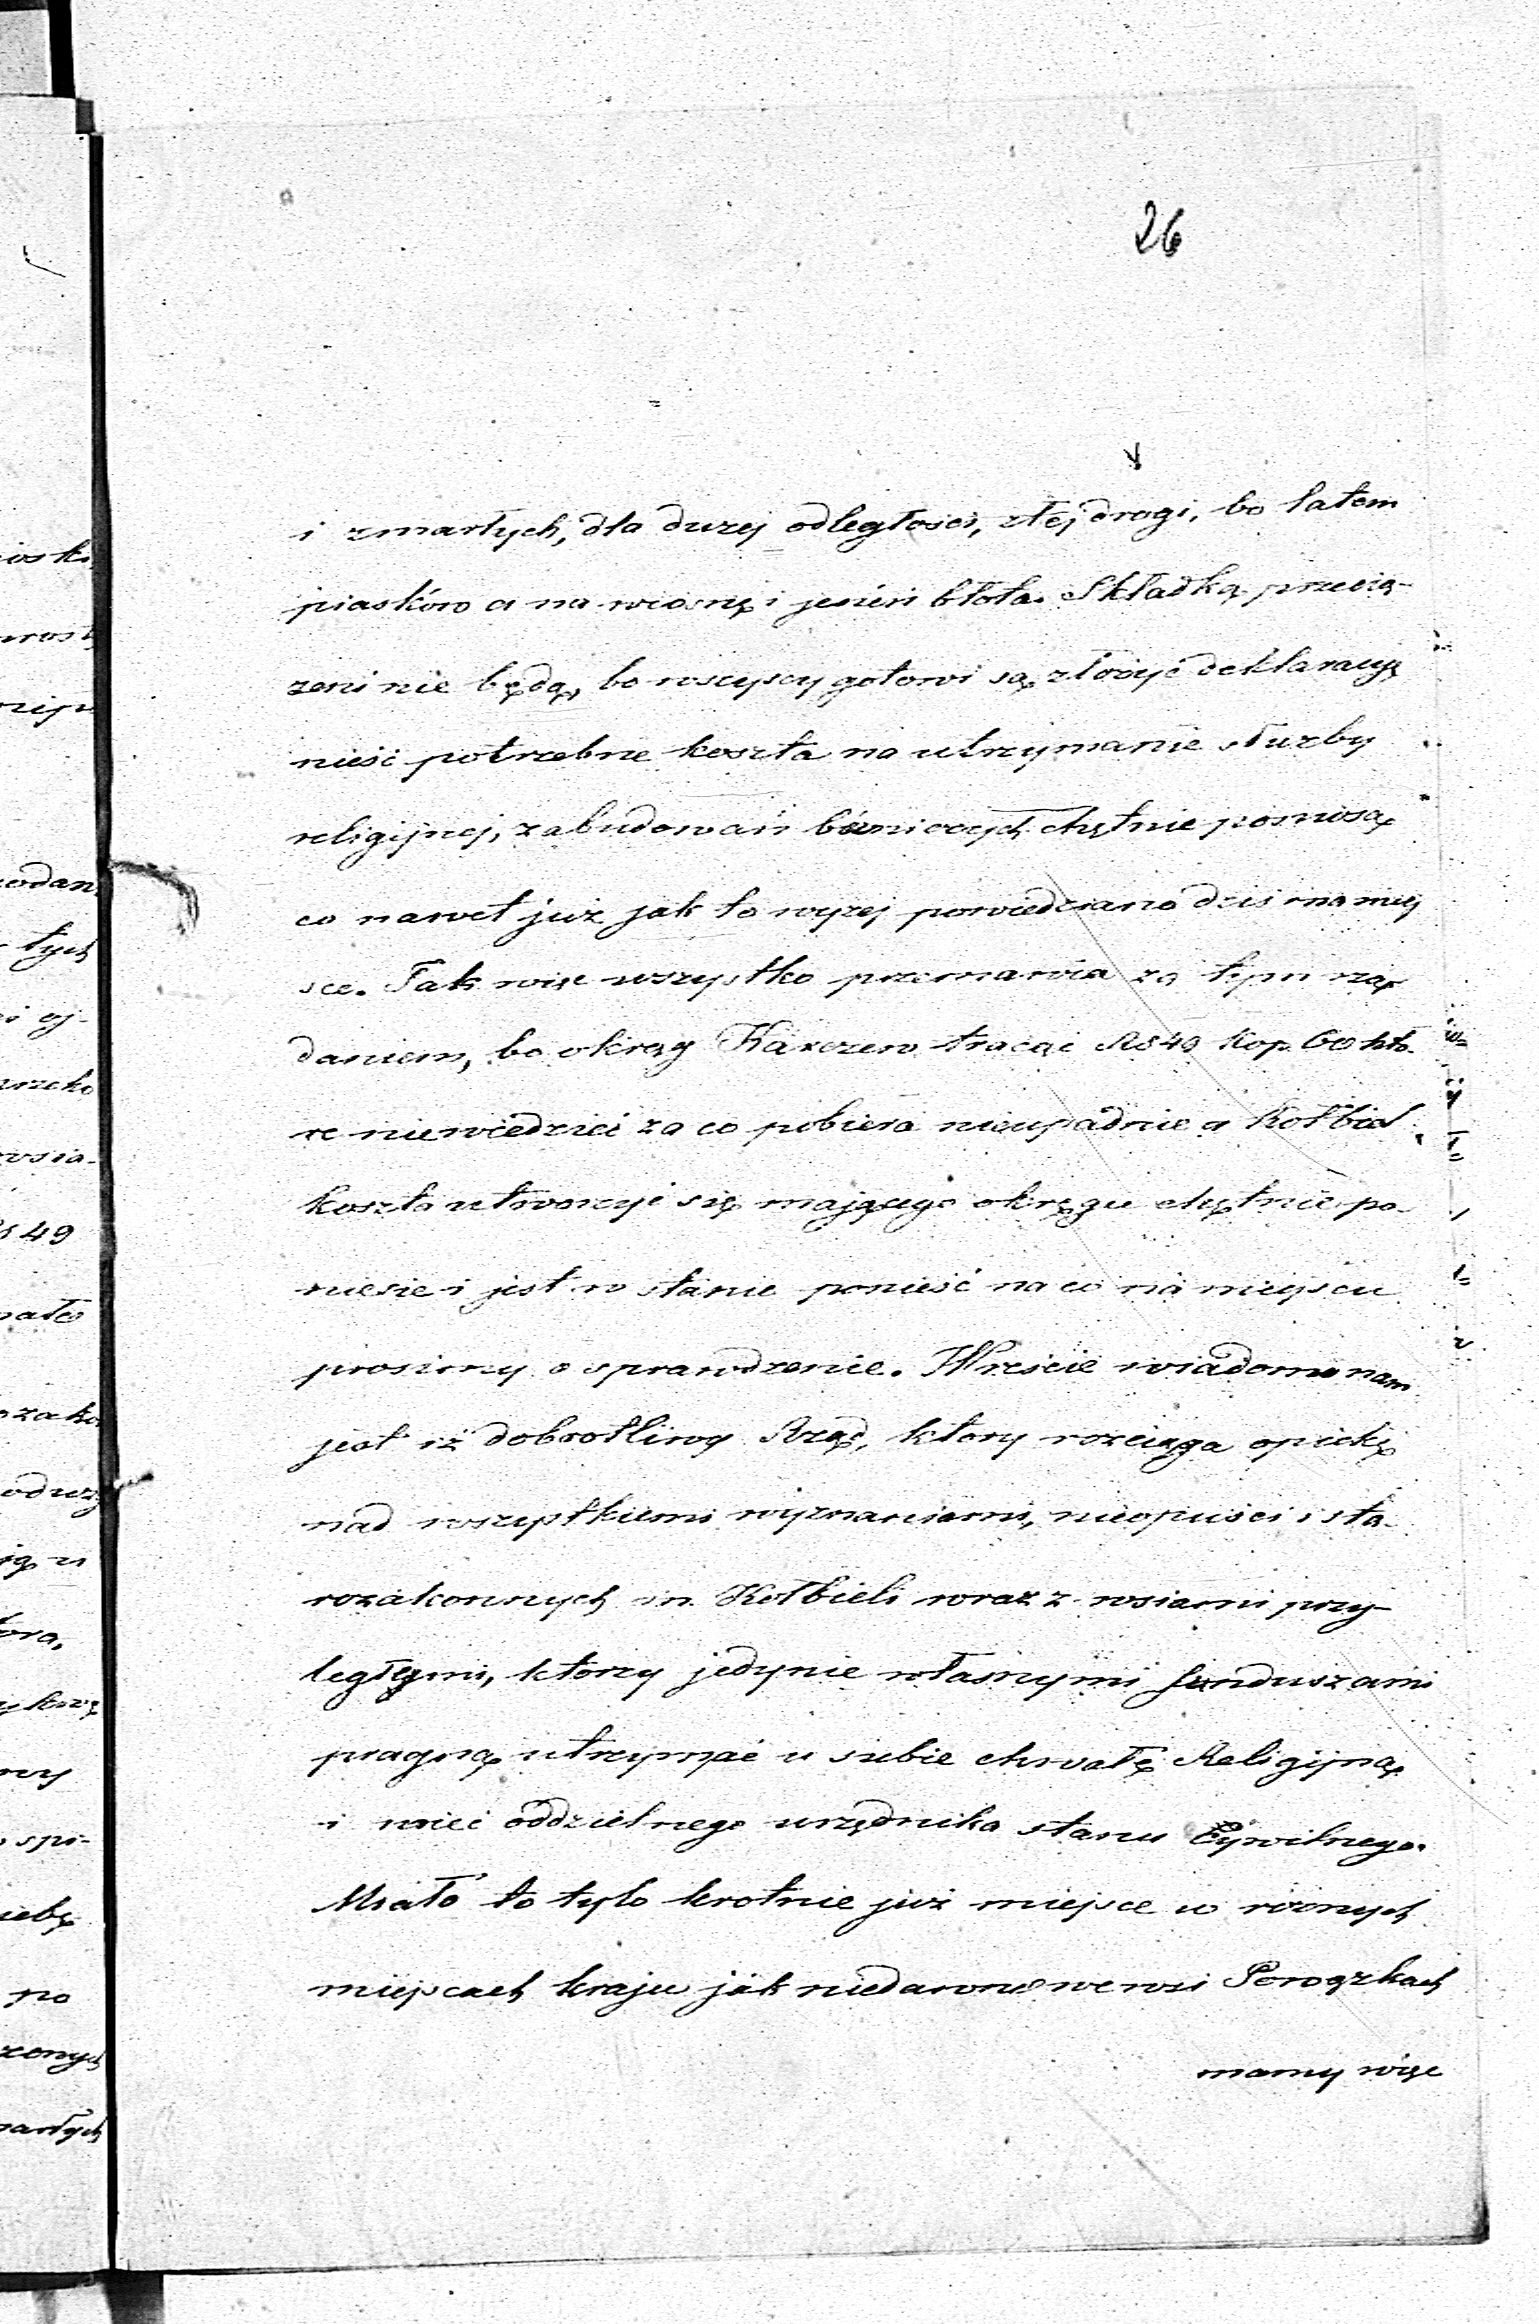 26
i zmarłych, dla duzej odległosci, złej drogi, bo latem
piasków a na wiosnę i jesién błota. Składką przecią-
zeni nie będą, bo wscyscy gotowi są złozyć deklaracyę
nieść potrzebne koszta na utrzymanie słuzby
religijnej, zabudowań bózniczych chętnie poniosą
co nawet już jak to wyzej powiedziano dziś ma miej
sce. Tak więc wszystko przemawia za tym rzą
daniem, bo okręg Karczew tracąc Rs 49 kop. 60 któ-
re niewiedzieć za co pobiera nieupadnie a Kołbiel
koszta utworzyć się mającego okręgu chętnie po-
niesie i jest w stanie ponieść na co na miejscu
prosimy o sprawdzenie. Wreście wiadomo nam
jest iż dobrotliwy Rząd, ktory rozciąga opiekę
nad wszystkiemi wyznaniami, nieopuści i sta-
rozakonnych m. Kołbieli wraz z wsiami przy-
ległymi, ktorzy jedynie własnymi funduszami
pragną utrzymać u siebie chwałę Religijną
i mieć oddzielnego urzędnika stanu Cywilnego.
Miało to tylo krotnie już miejsce w róznych
miejscach kraju jak niedawno we wsi Porązkach
mamy więc